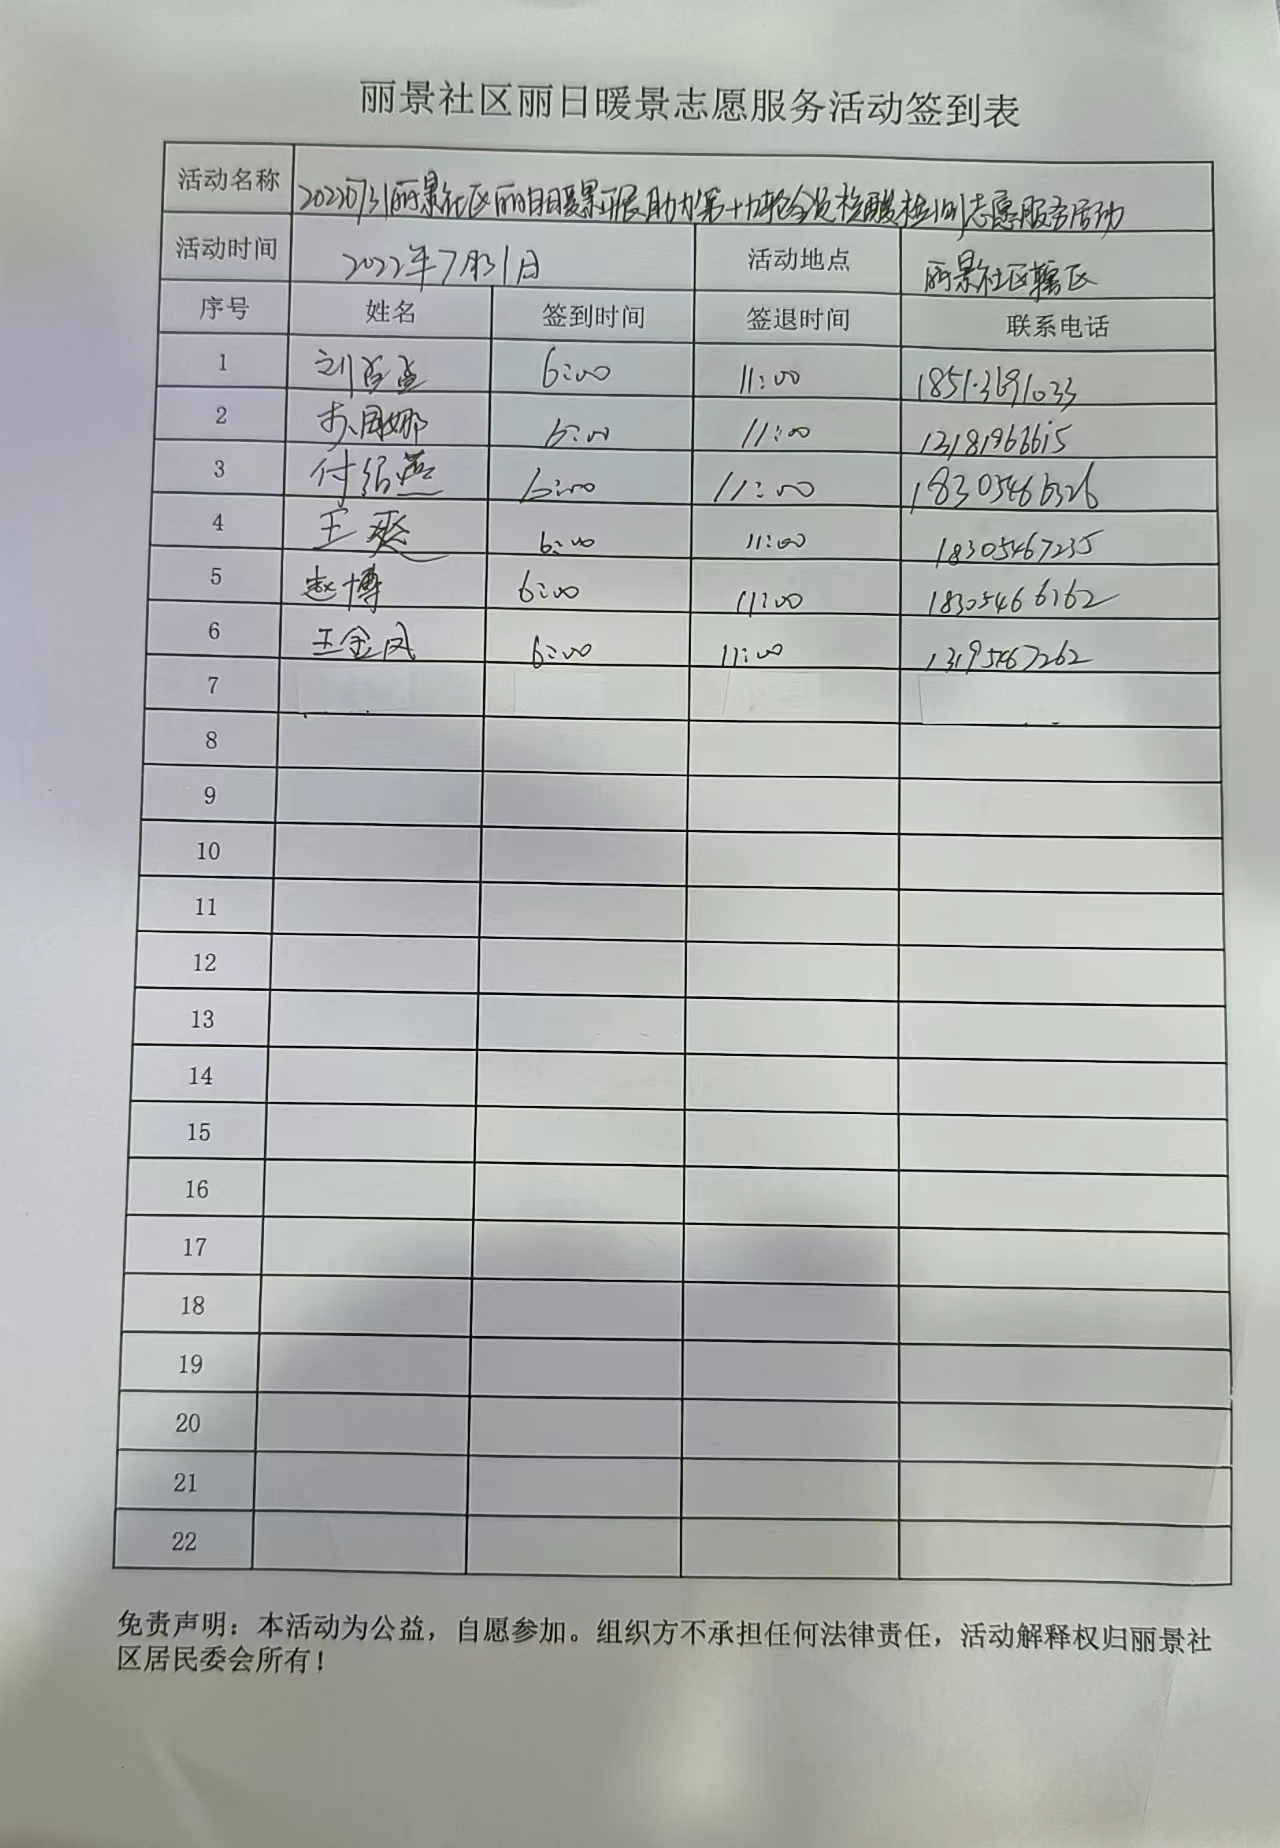 丽景社区丽日暖景志愿服务活动签到表
活动名称 20220731丽景社区丽日暖景开展助力第十九轮全员核酸检测志愿服务活动
活动时间 2022年7月31日 活动地点 丽景社区辖区
序号 姓名 签到时间 签退时间 联系电话
1 刘 6:00 11:00
2 6:00 11:00 13181966615
3 付绍燕 6:00 11:00 18305466326
4 王爽 6:00 11:00 18305467235
5 赵博 6:00 11:00 18305466162
6 王金凤 6:00 11:00 13195467262
7
8
9
10
11
12
13
14
15
16
17
18
19
20
21
22
免责声明：本活动为公益，自愿参加。组织方不承担任何法律责任，活动解释权归丽景社
区居民委会所有！